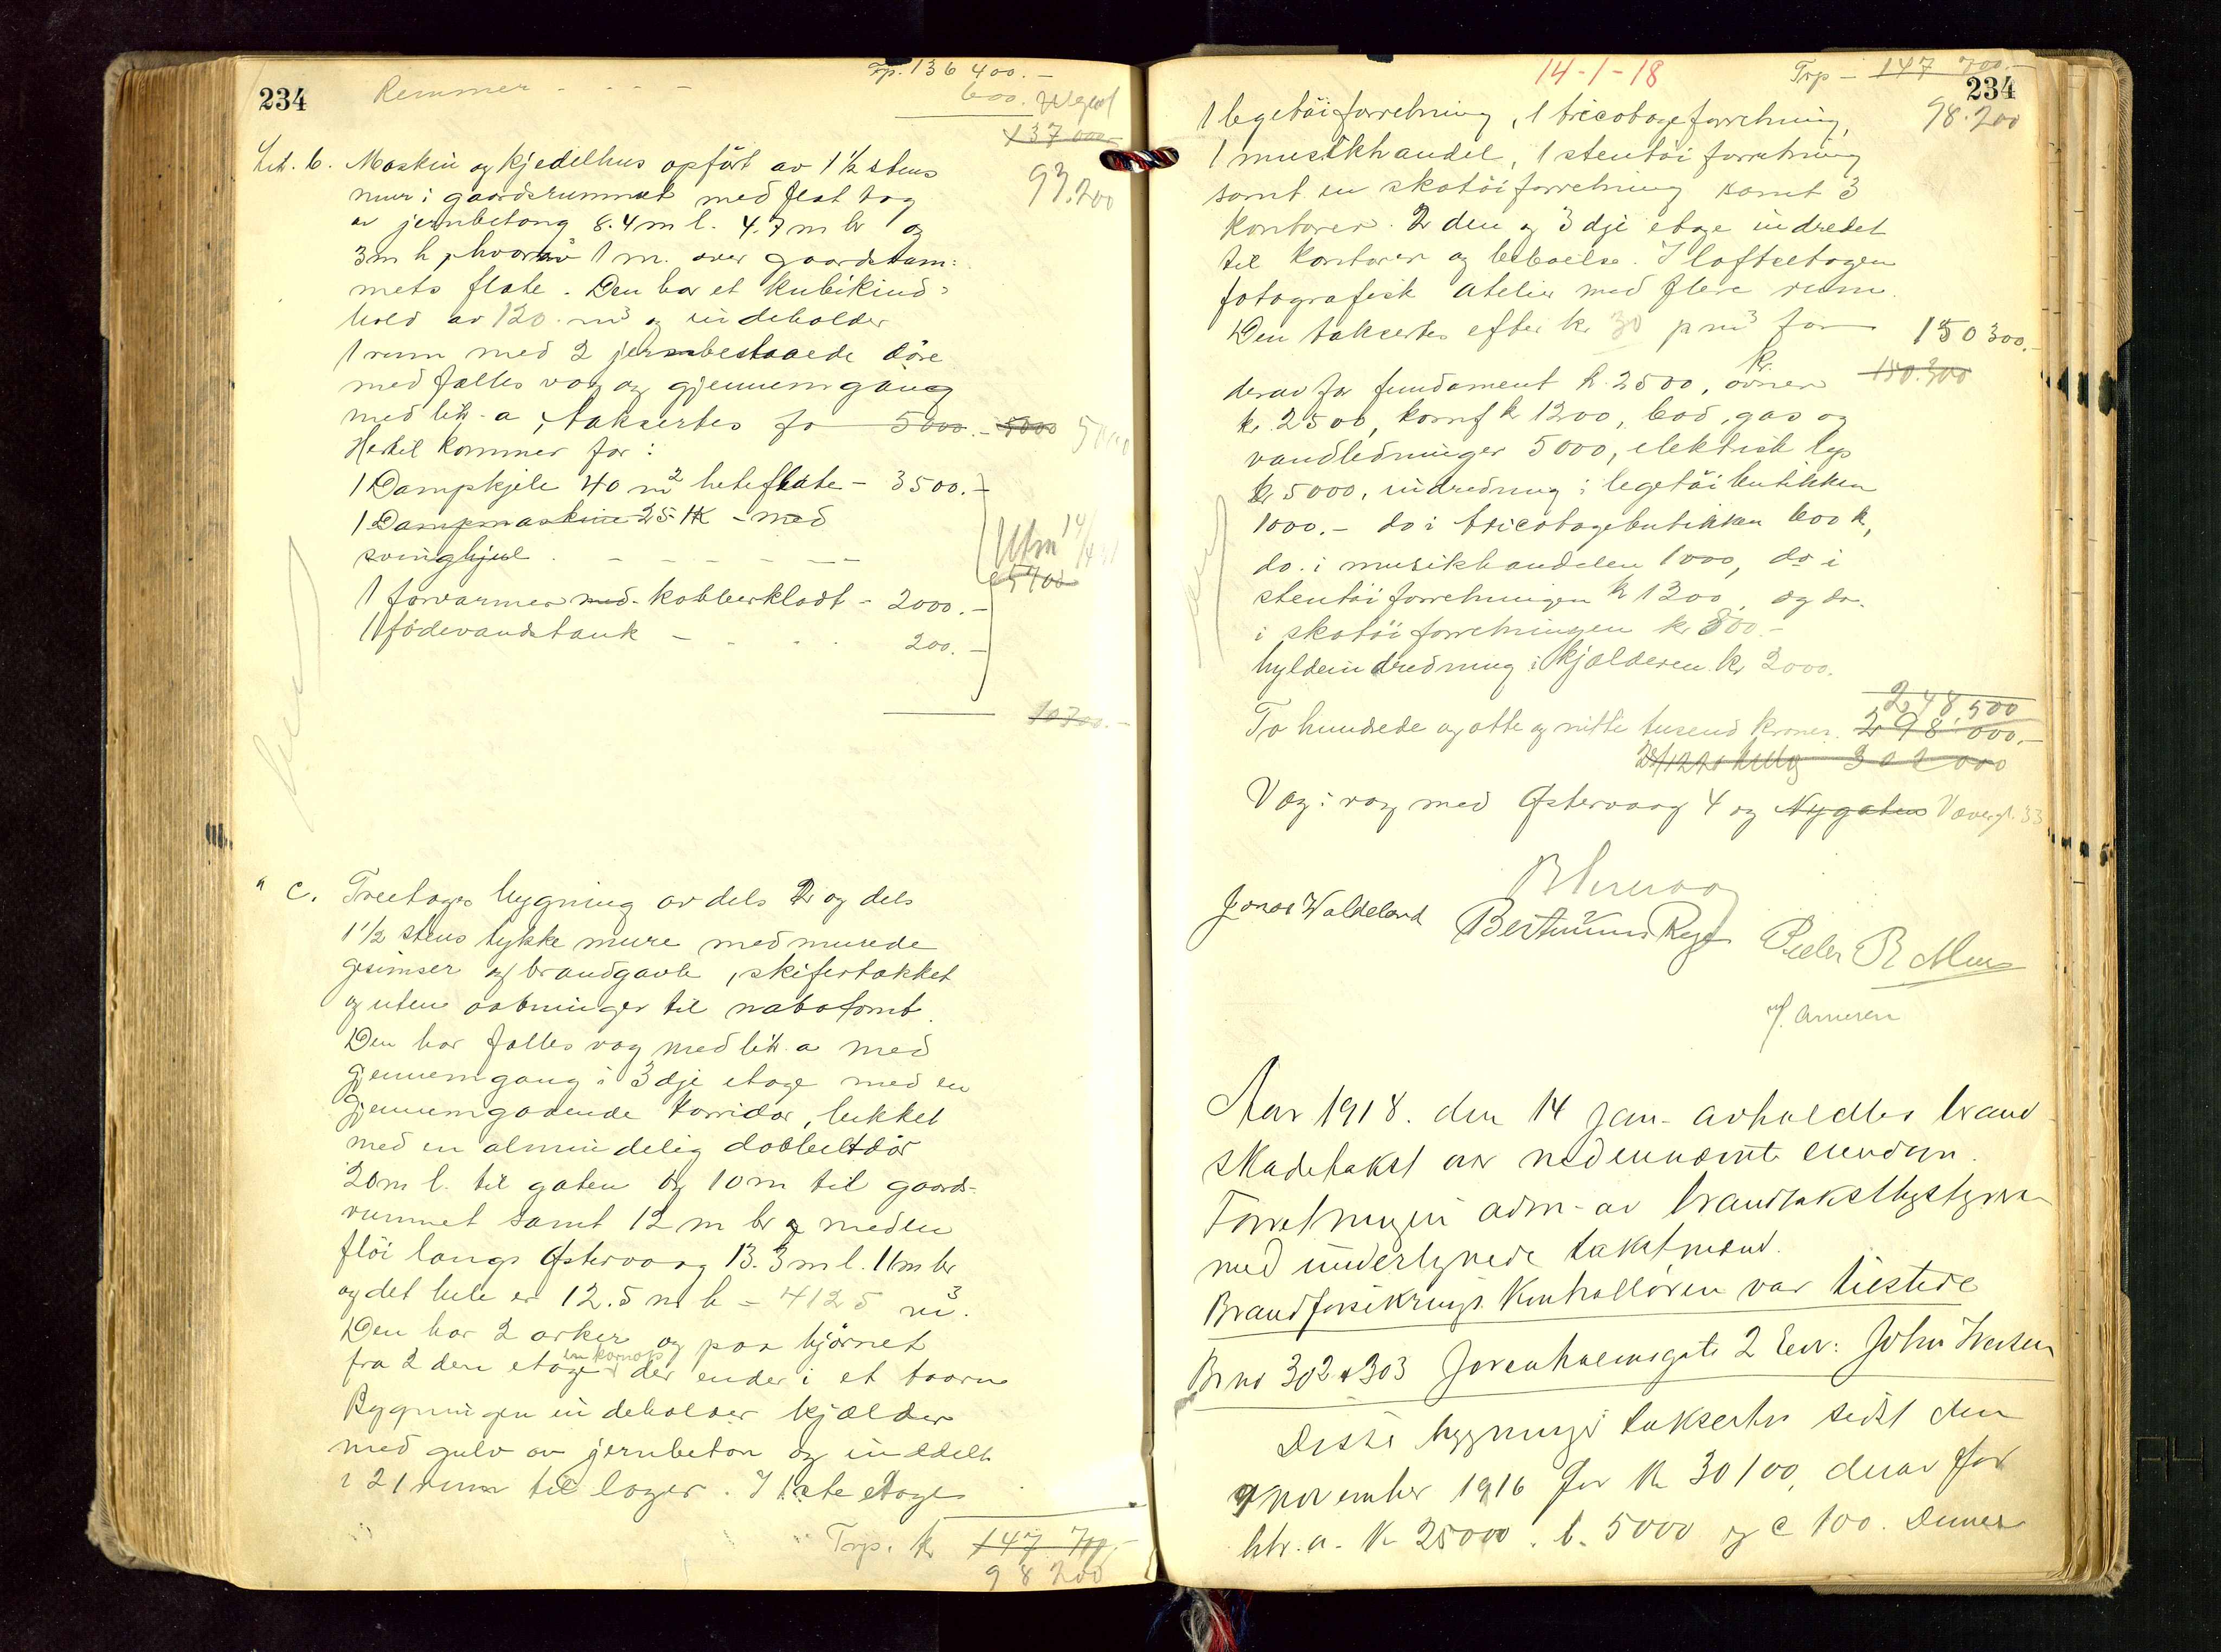 234
Remmer - - - -
Trp. 136 400.-
600.
137 000-
93.200
Lit. b. Maskin og kjedelhus opført av 1 1/2 stens
mur i gaardsrummet med flat tag
av jernbetong 8.4 m l. 4.7 m br og
3 m h, hvorav 1 m. over gaardsrum:
mets flate. Den har et kubikind-
hold av 120 m3 og indeholder
1 rum med 2 jernbeslaaede døre
med fælles væg og gjennemgang
med litr. a, taksertes for 5000.- 5000 5000
Hertil kommer for:
1 Dampkjele 40 m2 heteflate - 3500.-
1 Dampmaskine 25 HK - med
svinghjul . - - - - - -
Utm 14/4
5700
1 forvarmer med kobberkladt - 2000.-
1 fødevandstank - - . . 200.-
10700.-
" c. Treetages bygning av dels 2 og dels
1 1/2 stens tykke mure med murede
gesimser og brandgavle, skifertækket
og uten aabninger til nabotomt.
Den har fælles væg med litr. a med
gjennemgang i 3dje etage med en
gjennemgaaende korridor, lukket
med en almindelig dobbeltdør
20 m l. til gaten og 10 m til gaards-
rummet samt 12 m br og med en
fløi langs Østervaag 13.3 m l. 11 m br
og det hele er 12.5 m h = 4125 m3.
Den har 2 arker og paa hjørnet
fra 2den etage en karnap der ender i et taarn
Bygningen indeholder kjælder
med gulv av jernbeton og inddelt
i 21 rum til lager. I 1ste etage
Trp. kr 147 700,-
98 200
14-1-18
Trp - 147 700.-
234
98.200
1 legetøiforretning, 1 tricotageforretning,
1 musikhandel, 1 stentøiforretning
samt en skotøiforretning samt 3
kontorer. 2den og 3dje etage indredet
til kontorer og beboelse. I loftsetagen
fotografisk atelier med flere rum.
Den taksertes efter kr 30 pr m3 for 150 300.-
150.300
derav for fundament kr. 2500, ovner kr.
kr. 2500, komf kr 1200, bad, gas og
vandledninger 5000, elektrisk lys
kr 5000, indredning i legetøibutikken
1000.- do i tricotagebutikken 600 kr,
do. i musikhandelen 1000, do i
stentøiforretningen kr 1200, og do.
i skotøiforretningen kr 800.-
hyldeindredning i kjælderen kr 2000.
248 500
To hundrede og otte og nitti tusend kroner. 298.000.-
302000
Væg i væg med Østervaag 4 og Nygaten Vævergt. 33
Jonas Waldeland
Bertinius Rege
Peder R.
J. Arnesen
Aar 1918. den 14 Jan. avholdtes brand
skadetakst over nedennævnte eiendom.
Forretningen adm. av brandtakstbestyreren
med undertegnede takstmænd.
Brandforsikrings Kontrolløren var tilstede
Brno 302 & 303 Jorenholmsgate 2 Eier: John Iversen
Disse bygninger taksertes sidst den
9 november 1916 for kr 30100, derav for
litr. a. kr 25000. b. 5000 og c 100. Denne